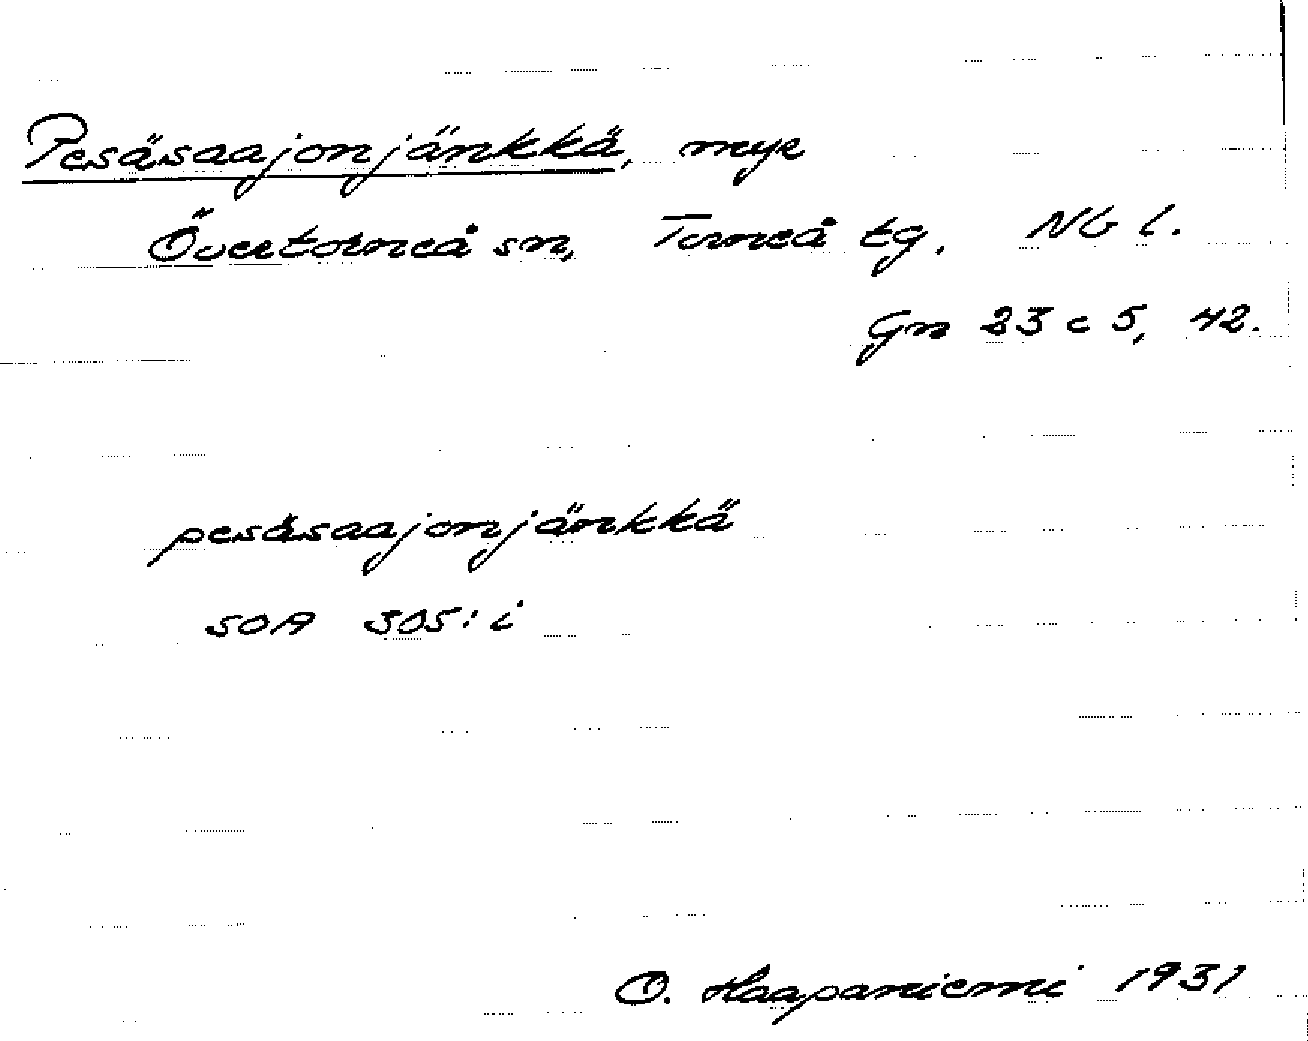 Pesäsaajonjänkkä, myr
Övertorneå sn, Torneå tg. Nb l.
Gn 23 c 5, 42.
pesäsaajonjänkkä
SOA 305:i
O. Haapaniemi 1931